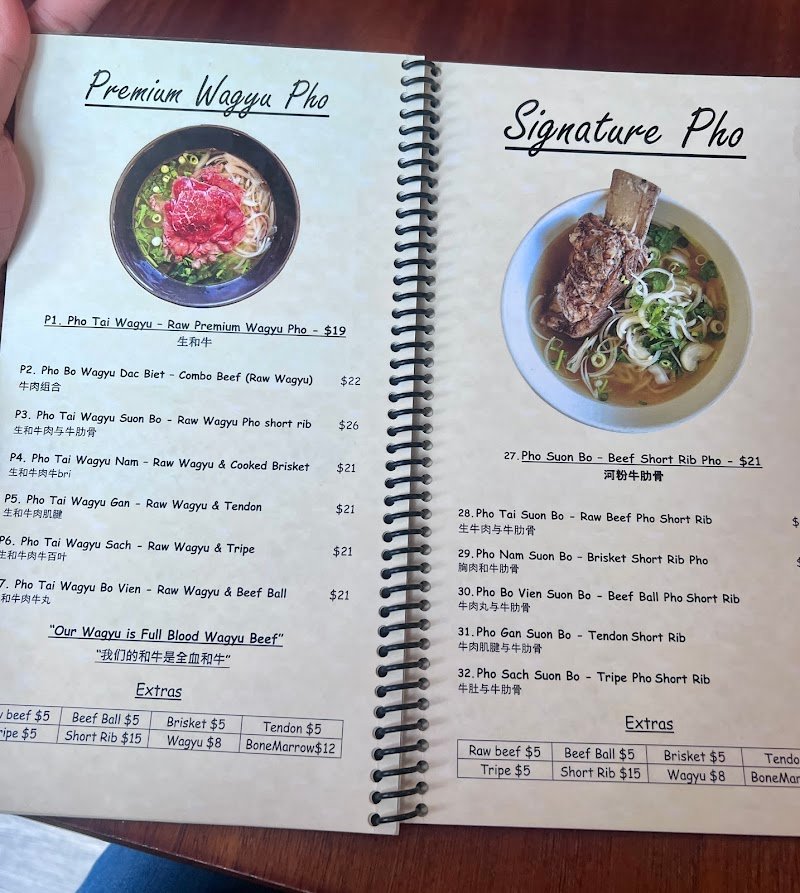 Premium Wagyu Pho
P1. Pho Tai Wagyu - Raw Premium Wagyu Pho - $19
生和牛
P2. Pho Bo Wagyu Dac Biet - Combo Beef (Raw Wagyu) $22
牛肉组合
P3. Pho Tai Wagyu Suon Bo - Raw Wagyu Pho short rib $26
生和牛肉与牛肋骨
P4. Pho Tai Wagyu Nam - Raw Wagyu & Cooked Brisket $21
生和牛肉牛bri
P5. Pho Tai Wagyu Gan - Raw Wagyu & Tendon $21
生和牛肉肌腱
P6. Pho Tai Wagyu Sach - Raw Wagyu & Tripe $21
生和牛肉牛百叶
7. Pho Tai Wagyu Bo Vien - Raw Wagyu & Beef Ball $21
和牛肉牛丸
"Our Wagyu is Full Blood Wagyu Beef"
"我们的和牛是全血和牛"
Extras
beef $5 Beef Ball $5 Brisket $5 Tendon $5
ripe $5 Short Rib $15 Wagyu $8 BoneMarrow$12
Signature Pho
27. Pho Suon Bo - Beef Short Rib Pho - $21
河粉牛肋骨
28. Pho Tai Suon Bo - Raw Beef Pho Short Rib
生牛肉与牛肋骨
29. Pho Nam Suon Bo - Brisket Short Rib Pho
胸肉和牛肋骨
30. Pho Bo Vien Suon Bo - Beef Ball Pho Short Rib
牛肉丸与牛肋骨
31. Pho Gan Suon Bo - Tendon Short Rib
牛肉肌腱与牛肋骨
32. Pho Sach Suon Bo - Tripe Pho Short Rib
牛肚与牛肋骨
Extras
Raw beef $5 Beef Ball $5 Brisket $5 Tendo
Tripe $5 Short Rib $15 Wagyu $8 BoneMar